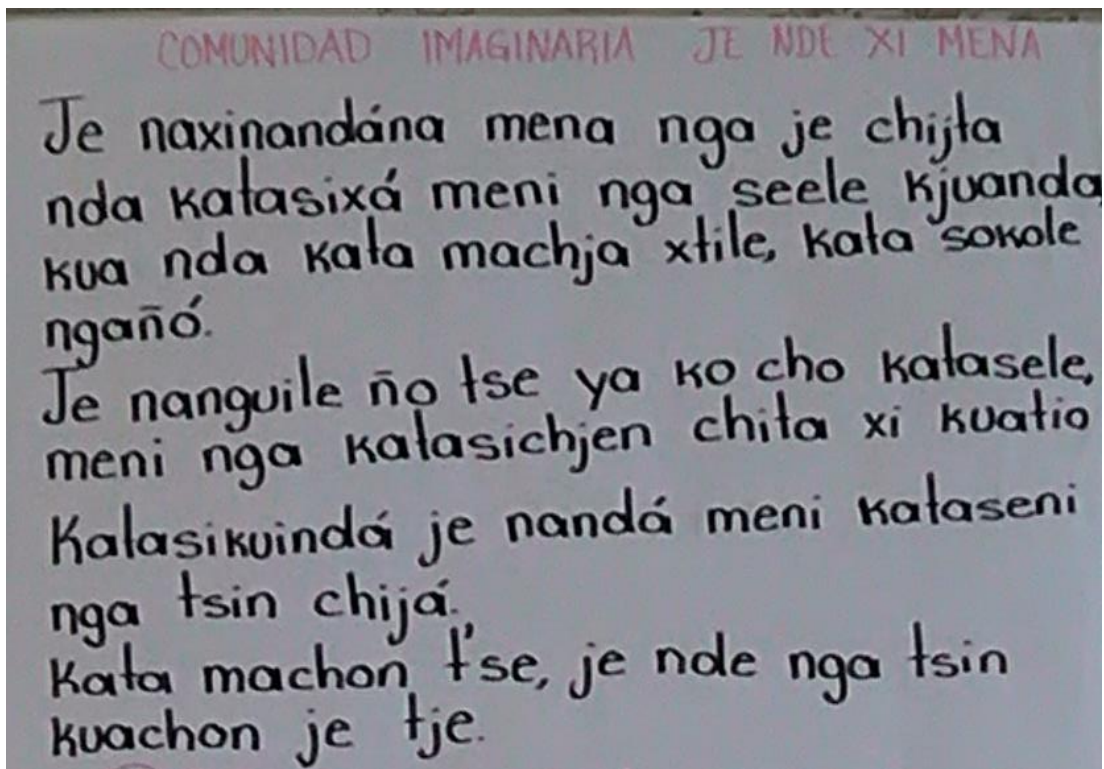 COMUNIDAD IMAGINARIA JE NDE XI MENA
Je naxinandána mena nga je chijta
nda katasixá meni nga seele kjuanda
kua nda kata machja xtile, kata sokole
ngañó.
Je nanguile ño tse ya ko cho katasele,
meni nga katasichjen chita xi kuatio
Katasikuindá je nandá meni kataseni
nga tsin chijá.,
Kata machon t'se, je nde nga tsin
kuachon je tje.